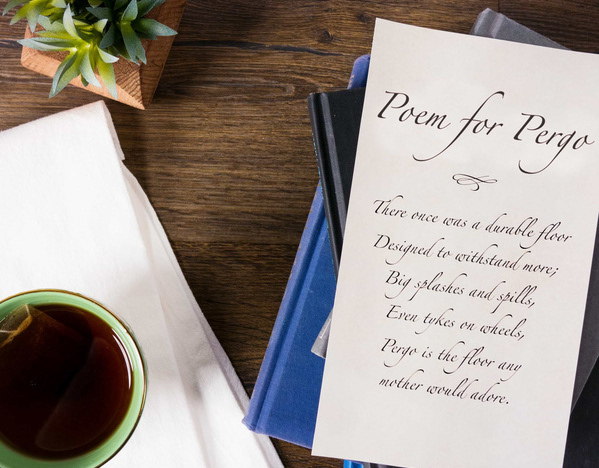 Poem for Pergo
There once was a durable floor
Designed to withstand more;
Big splashes and spills,
Even tykes on wheels,
Pergo is the floor any
mother would adore.